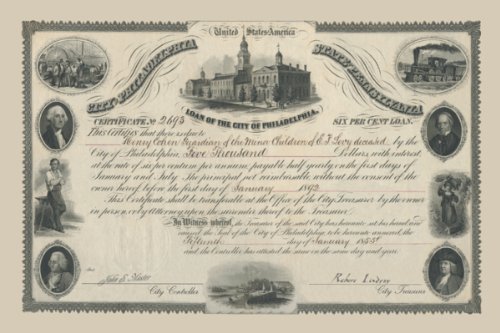 United States America
CITY OF PHILADELPHIA STATE OF PENNSYLVANIA
LOAN OF THE CITY OF PHILADELPHIA.
CERTIFICATE No 2693 SIX PER CENT LOAN.
This Certifies that there is due to
Henry Cohen Guardian of the Minor Children of E. J. Levy deceased by the
City of Philadelphia, Five Thousand Dollars, with interest
at the rate of six per centum per annum, payable half yearly on the first days of
January and July. The principal not reimbursable without the consent of the
owner hereof before the first day of January 1892
This Certificate shall be transferable at the Office of the City Treasurer by the owner
in person, or by Attorney upon the surrender thereof to the Treasurer.
In Witness whereof, the Treasurer of the said City has hereunto set his hand and
caused the Seal of the City of Philadelphia, to be hereunto annexed, the
Fifteenth day of January 1855
and the Controller has attested the same on the same day and year.
Attest
John N.
City Controller City Treasurer